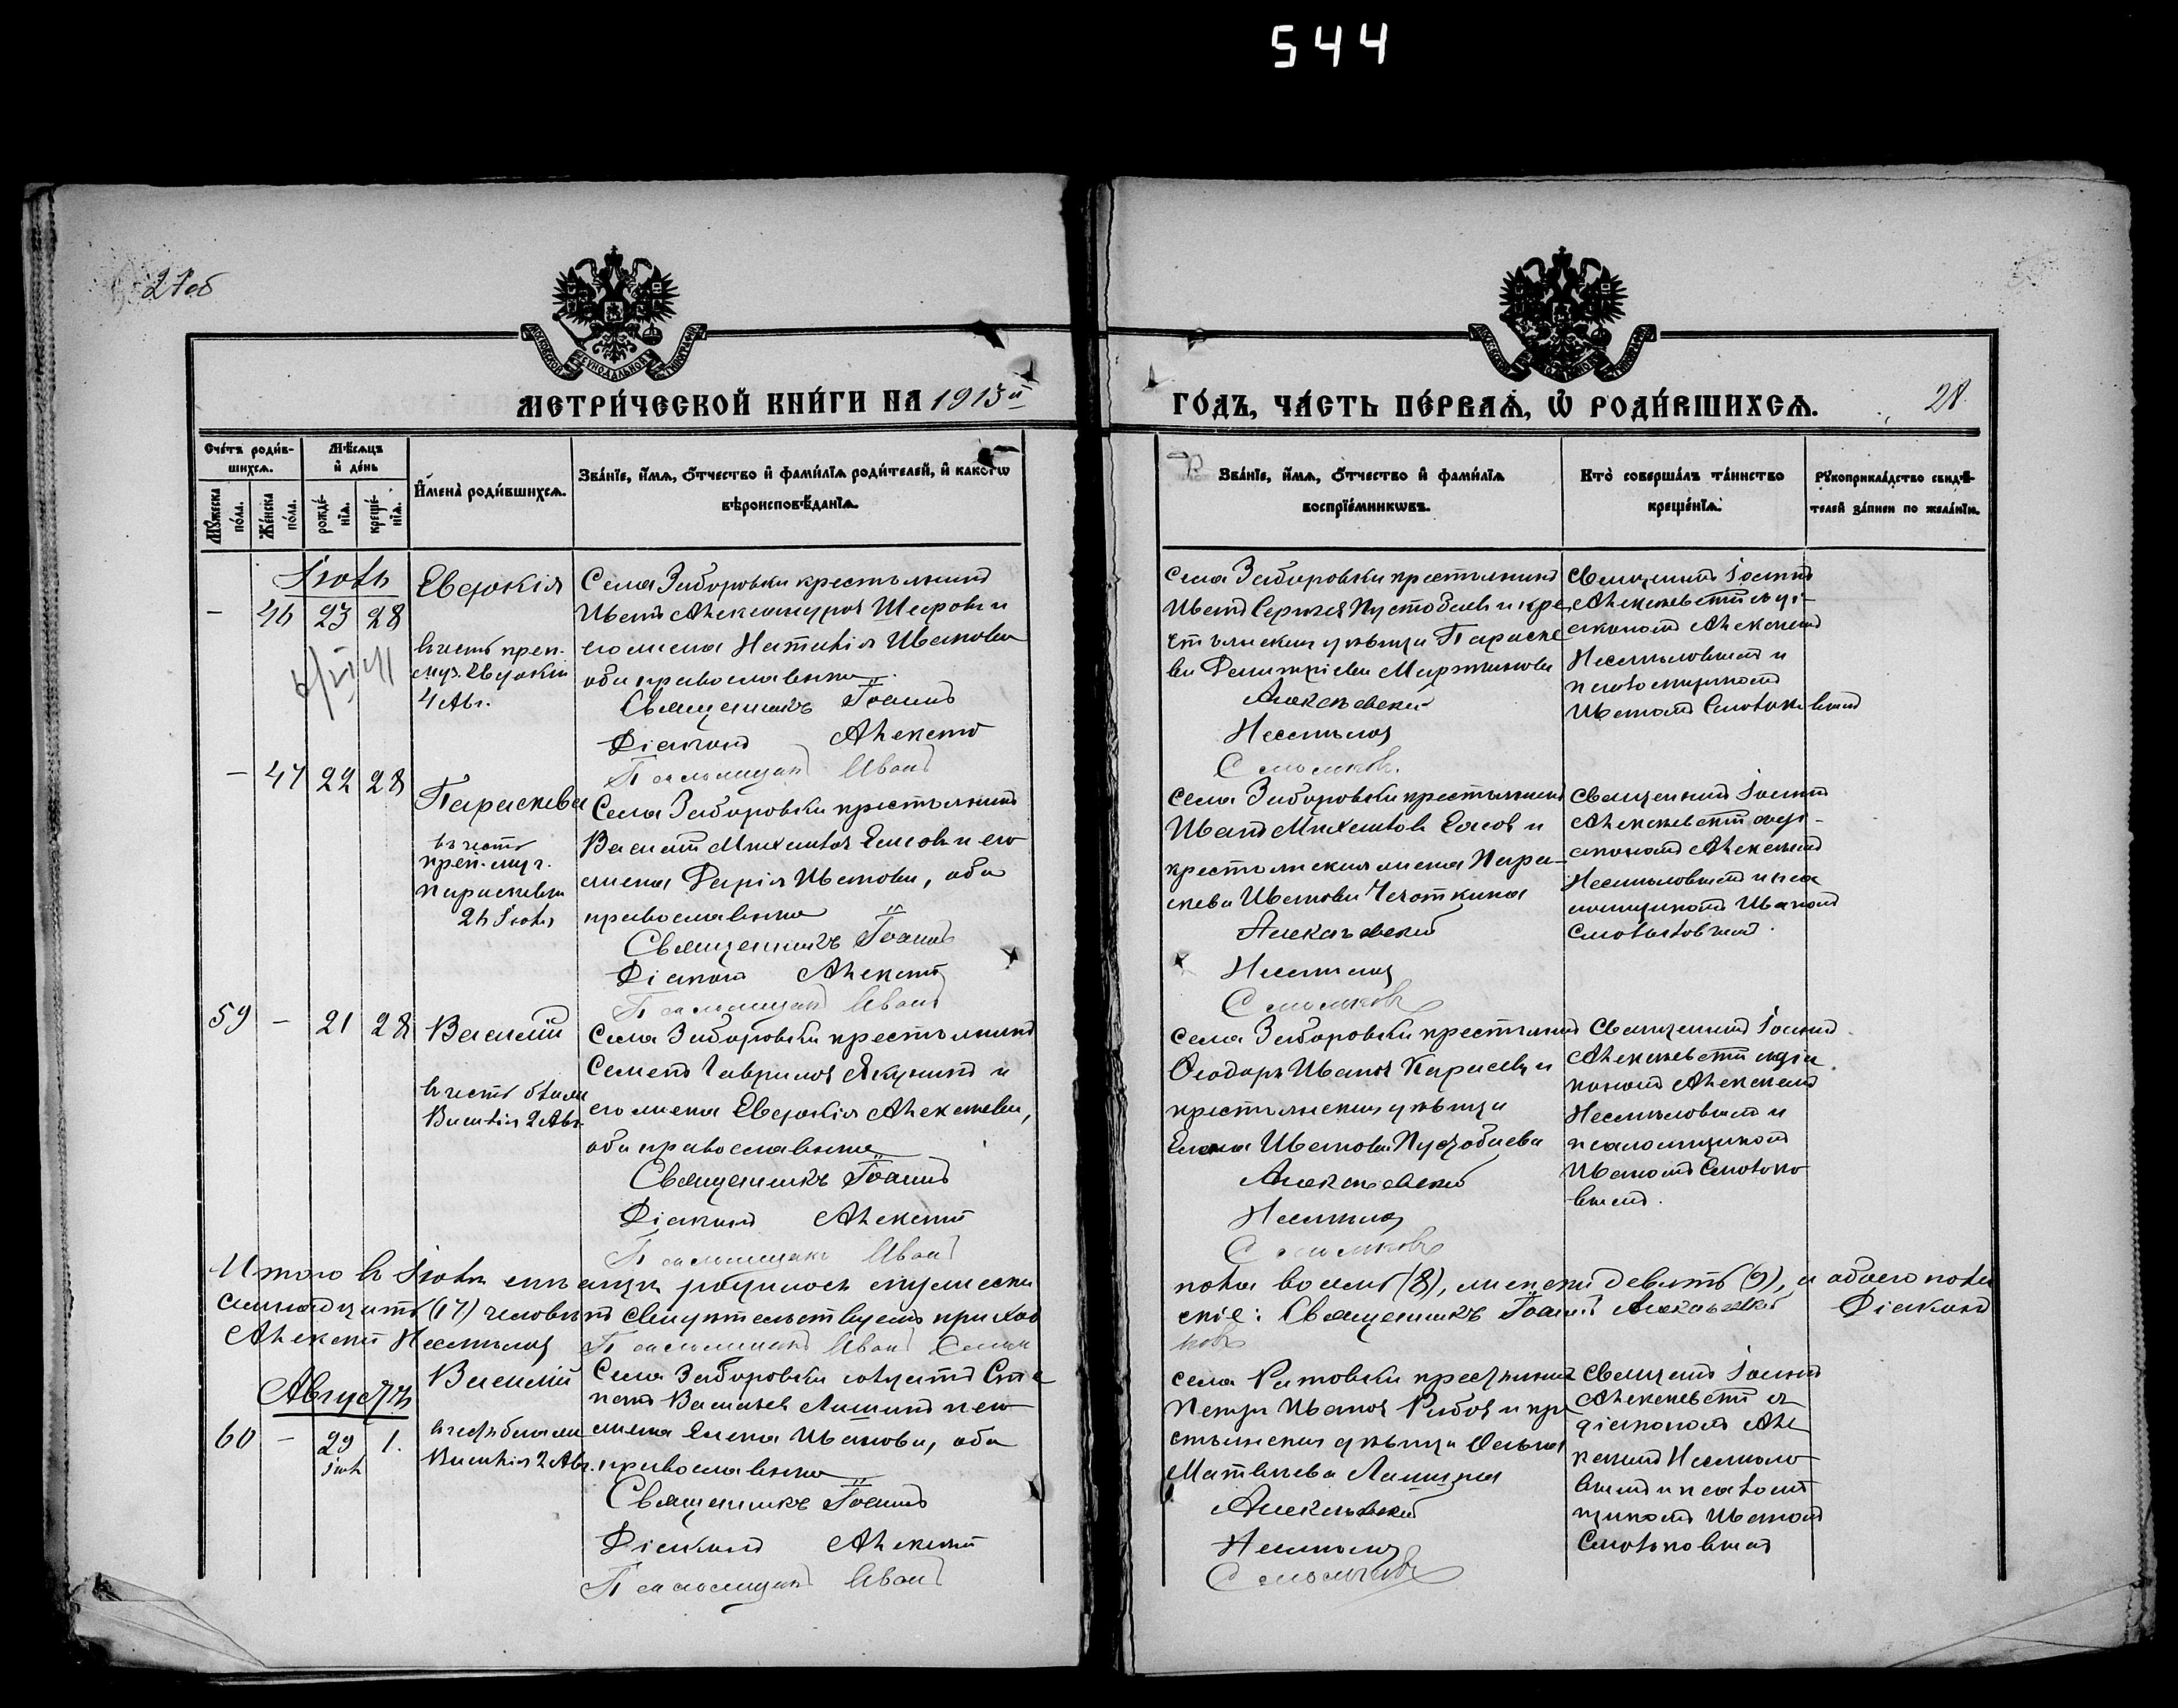 544
27об
МЕТРИ́ЧЕСКОЙ КНИ́ГИ НА 1913й
ГО́ДЪ, ЧА́СТЬ ПЕ́РВАѦ, Ѡ҆ РОДИ́ВШИХСѦ.
28.
Сче́тъ роди́в-
шихсѧ.
Мѣ́сѧцъ
и҆ де́нь
Мꙋ́жеска по́ла.
Же́нска по́ла.
рожде́-
нїѧ.
креще́-
нїѧ.
И҆мена̀ роди́вшихсѧ.
Зва́нїе, и҆́мѧ, ѻ҆́тчество и҆ фами́лїѧ роди́телей, и҆ како́гѡ
вѣроисповѣ́данїѧ.
Зва́нїе, и҆́мѧ, ѻ҆́тчество и҆ фами́лїѧ
воспрїе́мникѡвъ.
Кто̀ соверша́лъ та́инство
креще́нїѧ.
Рꙋкоприкла́дство свидѣ́-
телей за́писи по жела́нїю.
Іюль
— 46 23 28
Евдокія
въ честь преп.
муч. Евдокіи
4 Авг.
Села Заборовки крестьянинъ
Иванъ Александровъ и
его жена Наталія Иванова
оба православные
Священникъ Іоаннъ
Діаконъ Алексій
Псаломщикъ Иванъ
Села Заборовки крестьянинъ
Иванъ Сергѣевъ Пустобаевъ и кре
стьянская дѣвица Параске
ва Димитріева Мартынова
Алексѣевскій
Несмѣловъ
Смольковъ.
Священникъ Іоаннъ
Алексѣевскій съ ді-
акономъ Алексіемъ
Несмѣловымъ и
псаломщикомъ
Иваномъ Смольковымъ
— 47 22 28
Параскева
въ честь
преп. муч.
Параскевы
26 Іюля
Села Заборовки крестьянинъ
Василій Михайловъ Елисовъ и его
жена Дарія Иванова, оба
православные
Священникъ Іоаннъ
Діаконъ Алексій
Псаломщикъ Иванъ
Села Заборовки крестьянинъ
Иванъ Михайловъ и
крестьянская жена Пара-
скева Иванова
Алексѣевскій
Несмѣловъ
Смольковъ
Священникъ Іоаннъ
Алексѣевскій съ ді-
акономъ Алексіемъ
Несмѣловымъ и пса
ломщикомъ Иваномъ
Смольковымъ.
59 — 21 28
Василій
въ честь блаж.
Василія 2 Авг.
Села Заборовки крестьянинъ
Семенъ Гавриловъ Якунинъ и
его жена Евдокія Алексѣева,
оба православные
Священникъ Іоаннъ
Діаконъ Алексій
Псаломщикъ Иванъ
Села Заборовки крестьянинъ
Ѳеодоръ Ивановъ Карасевъ и
крестьянская дѣвица
Елена Иванова Пустобаева
Алексѣевскій
Несмѣловъ
Смольковъ
Священникъ Іоаннъ
Алексѣевскій съ діа
кономъ Алексіемъ
Несмѣловымъ и
псаломщикомъ
Иваномъ Смолько
вымъ.
Итого въ Іюлѣ мѣсяцѣ родилось мужеска пола восемь (8), женска девять (9), и обоего пола
семнадцать (17) человѣкъ свидѣтельствуетъ приход скіе: Священникъ Іоаннъ Алексѣевскій Діаконъ
Алексій Несмѣловъ Псаломщикъ Иванъ Смоль ковъ
Августъ
60 — 29 1.
Іюль
Василій
въ честь блаж.
Василія 2 Авг.
Села Заборовки солдатъ Сте
панъ Васильевъ Лашинъ и его
жена Елена Иванова, оба
православные
Священникъ Іоаннъ
Діаконъ Алексій
Псаломщикъ Иванъ
Села крестьянинъ
Петръ Ивановъ и кре
стьянская дѣвица
Матвѣева Лашина
Алексѣевскій
Несмѣловъ
Смольковъ
Священ Іоаннъ
Алексѣевскій съ
діакономъ Але
ксіемъ Несмѣло
вымъ и псалом
щикомъ Иваномъ
Смольковымъ